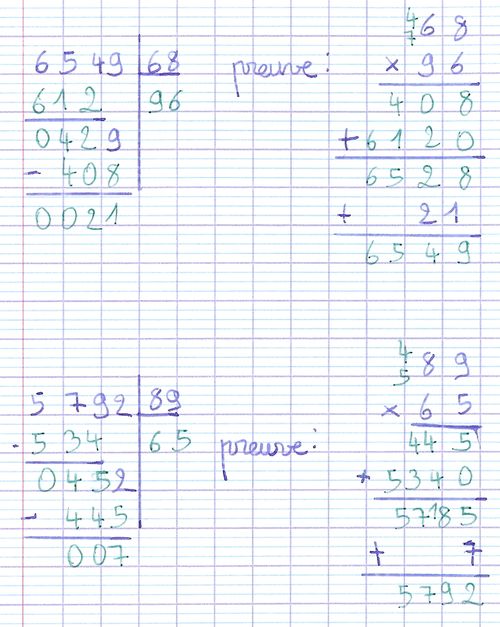 6549 | 68
612 | 96
0429
- 408
0021
preuve :
4
7
68
× 96
408
+ 6120
6528
+ 21
6549
5792 | 89
- 534 | 65
0452
- 445
007
preuve :
4
5
89
× 65
445
+ 5340
5785
+ 7
5792